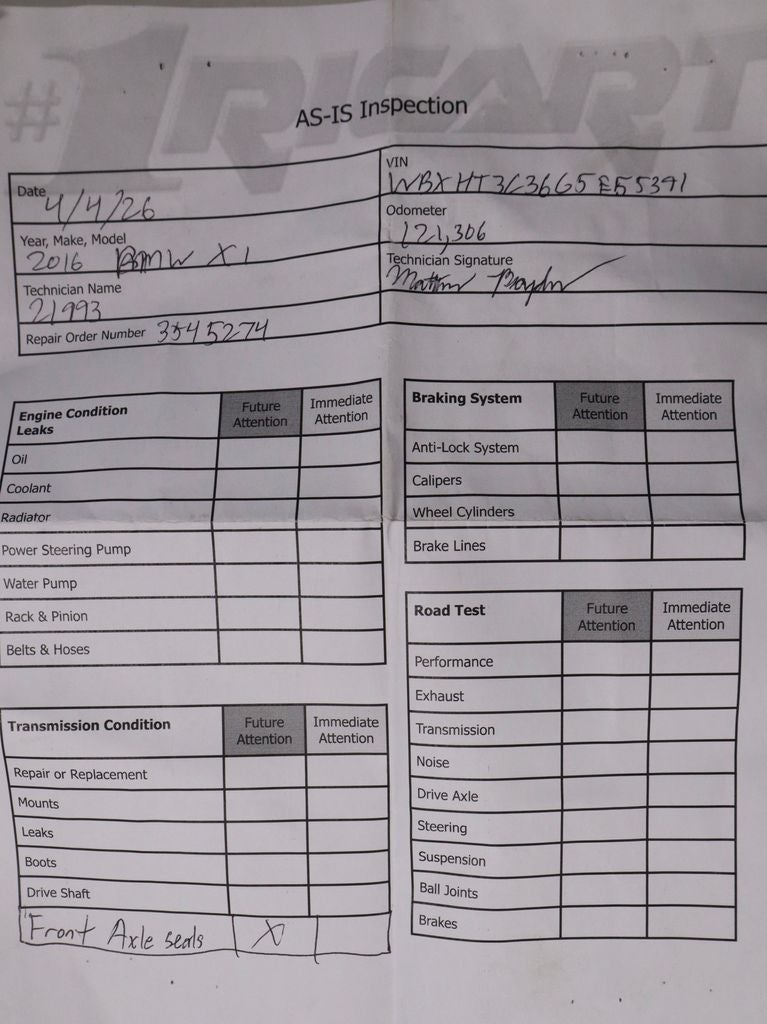 #1 RICART
AS-IS Inspection
Date 4/4/26
VIN WBXHT3C36G5E55391
Odometer 121,306
Year, Make, Model 2016 BMW X1
Technician Signature
Technician Name 21993
Repair Order Number 3545274
Engine Condition Leaks Future Attention Immediate Attention
Oil
Coolant
Radiator
Power Steering Pump
Water Pump
Rack & Pinion
Belts & Hoses
Transmission Condition Future Attention Immediate Attention
Repair or Replacement
Mounts
Leaks
Boots
Drive Shaft
Front Axle seals X
Braking System Future Attention Immediate Attention
Anti-Lock System
Calipers
Wheel Cylinders
Brake Lines
Road Test Future Attention Immediate Attention
Performance
Exhaust
Transmission
Noise
Drive Axle
Steering
Suspension
Ball Joints
Brakes